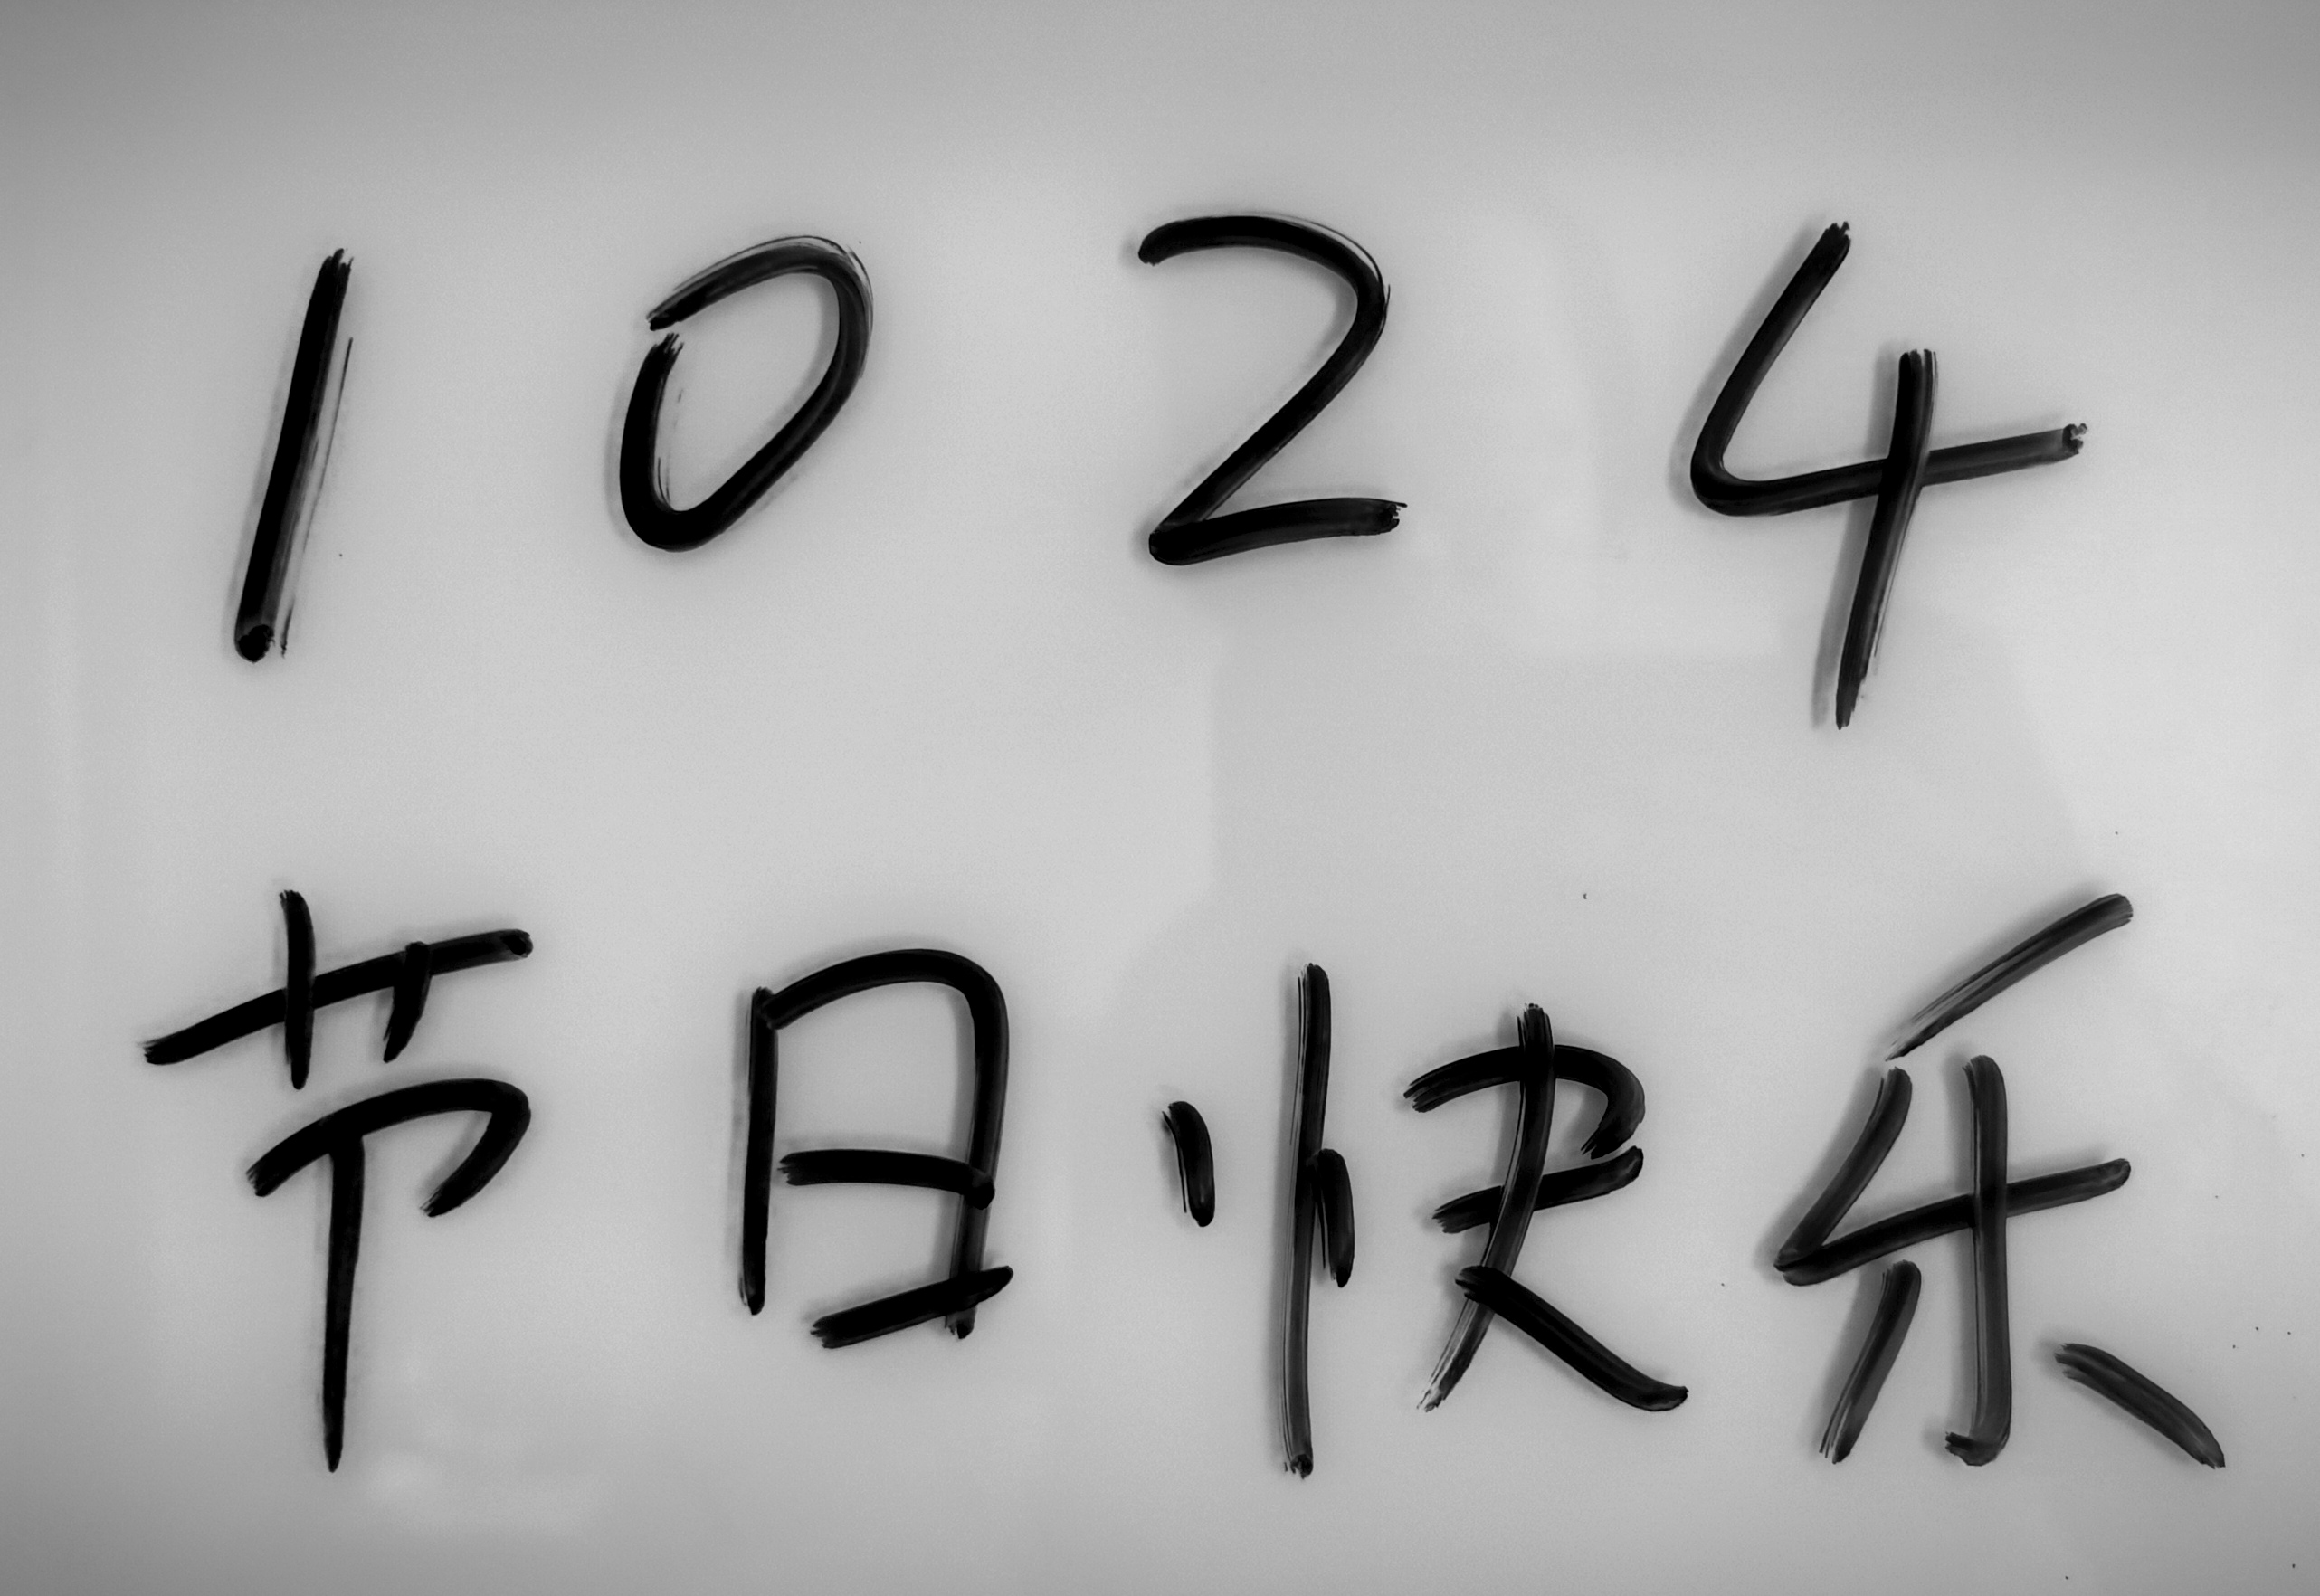 1024
节日快乐